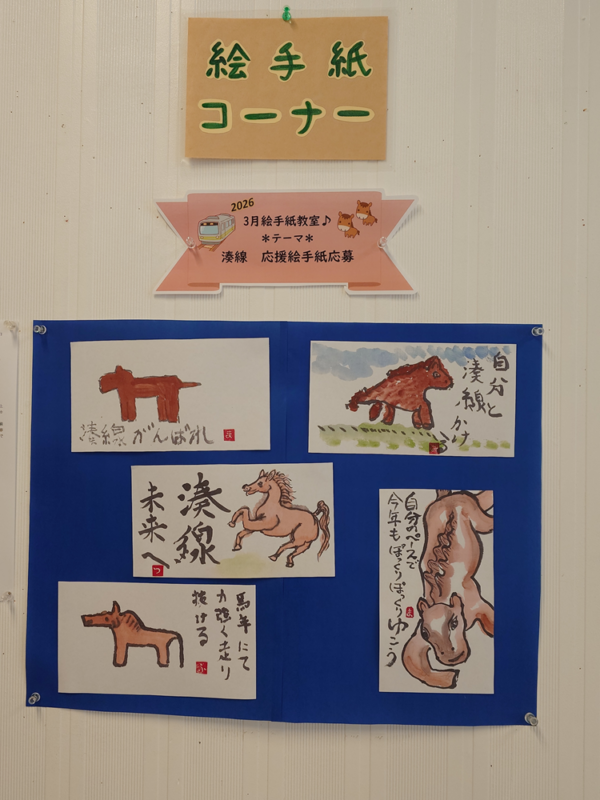 絵手紙
コーナー
2026
3月絵手紙教室♪
＊テーマ＊
湊線　応援絵手紙応募
湊線がんばれ
自分と
湊線かけ
る
湊線
未来へ
つ
自分のペースで
今年もぽっくりぽっくりゆこう
馬年にて
力強く走り
抜ける
ふ